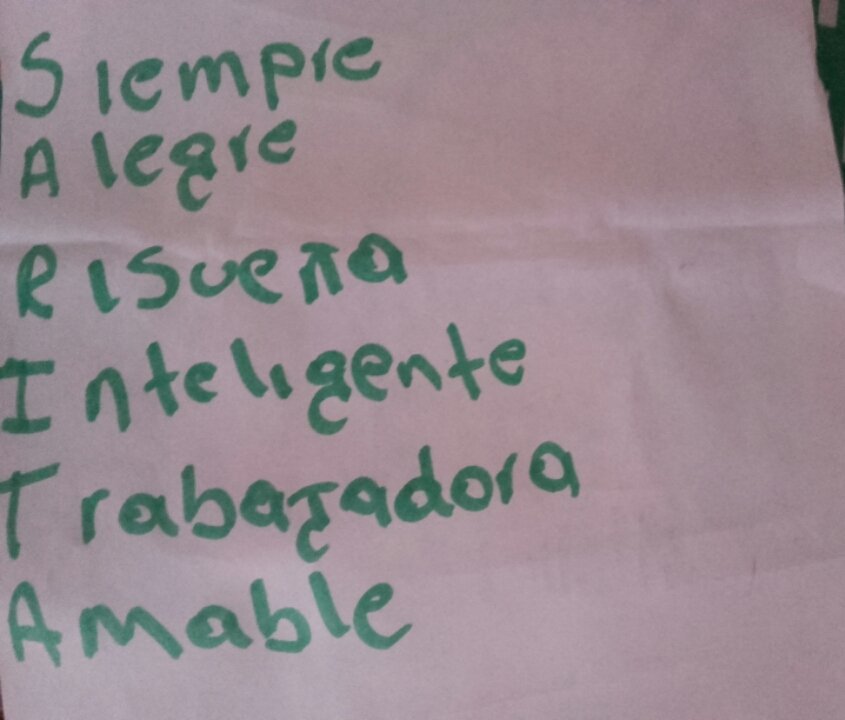 Siempre
Alegre
Risueña
Inteligente
Trabajadora
Amable